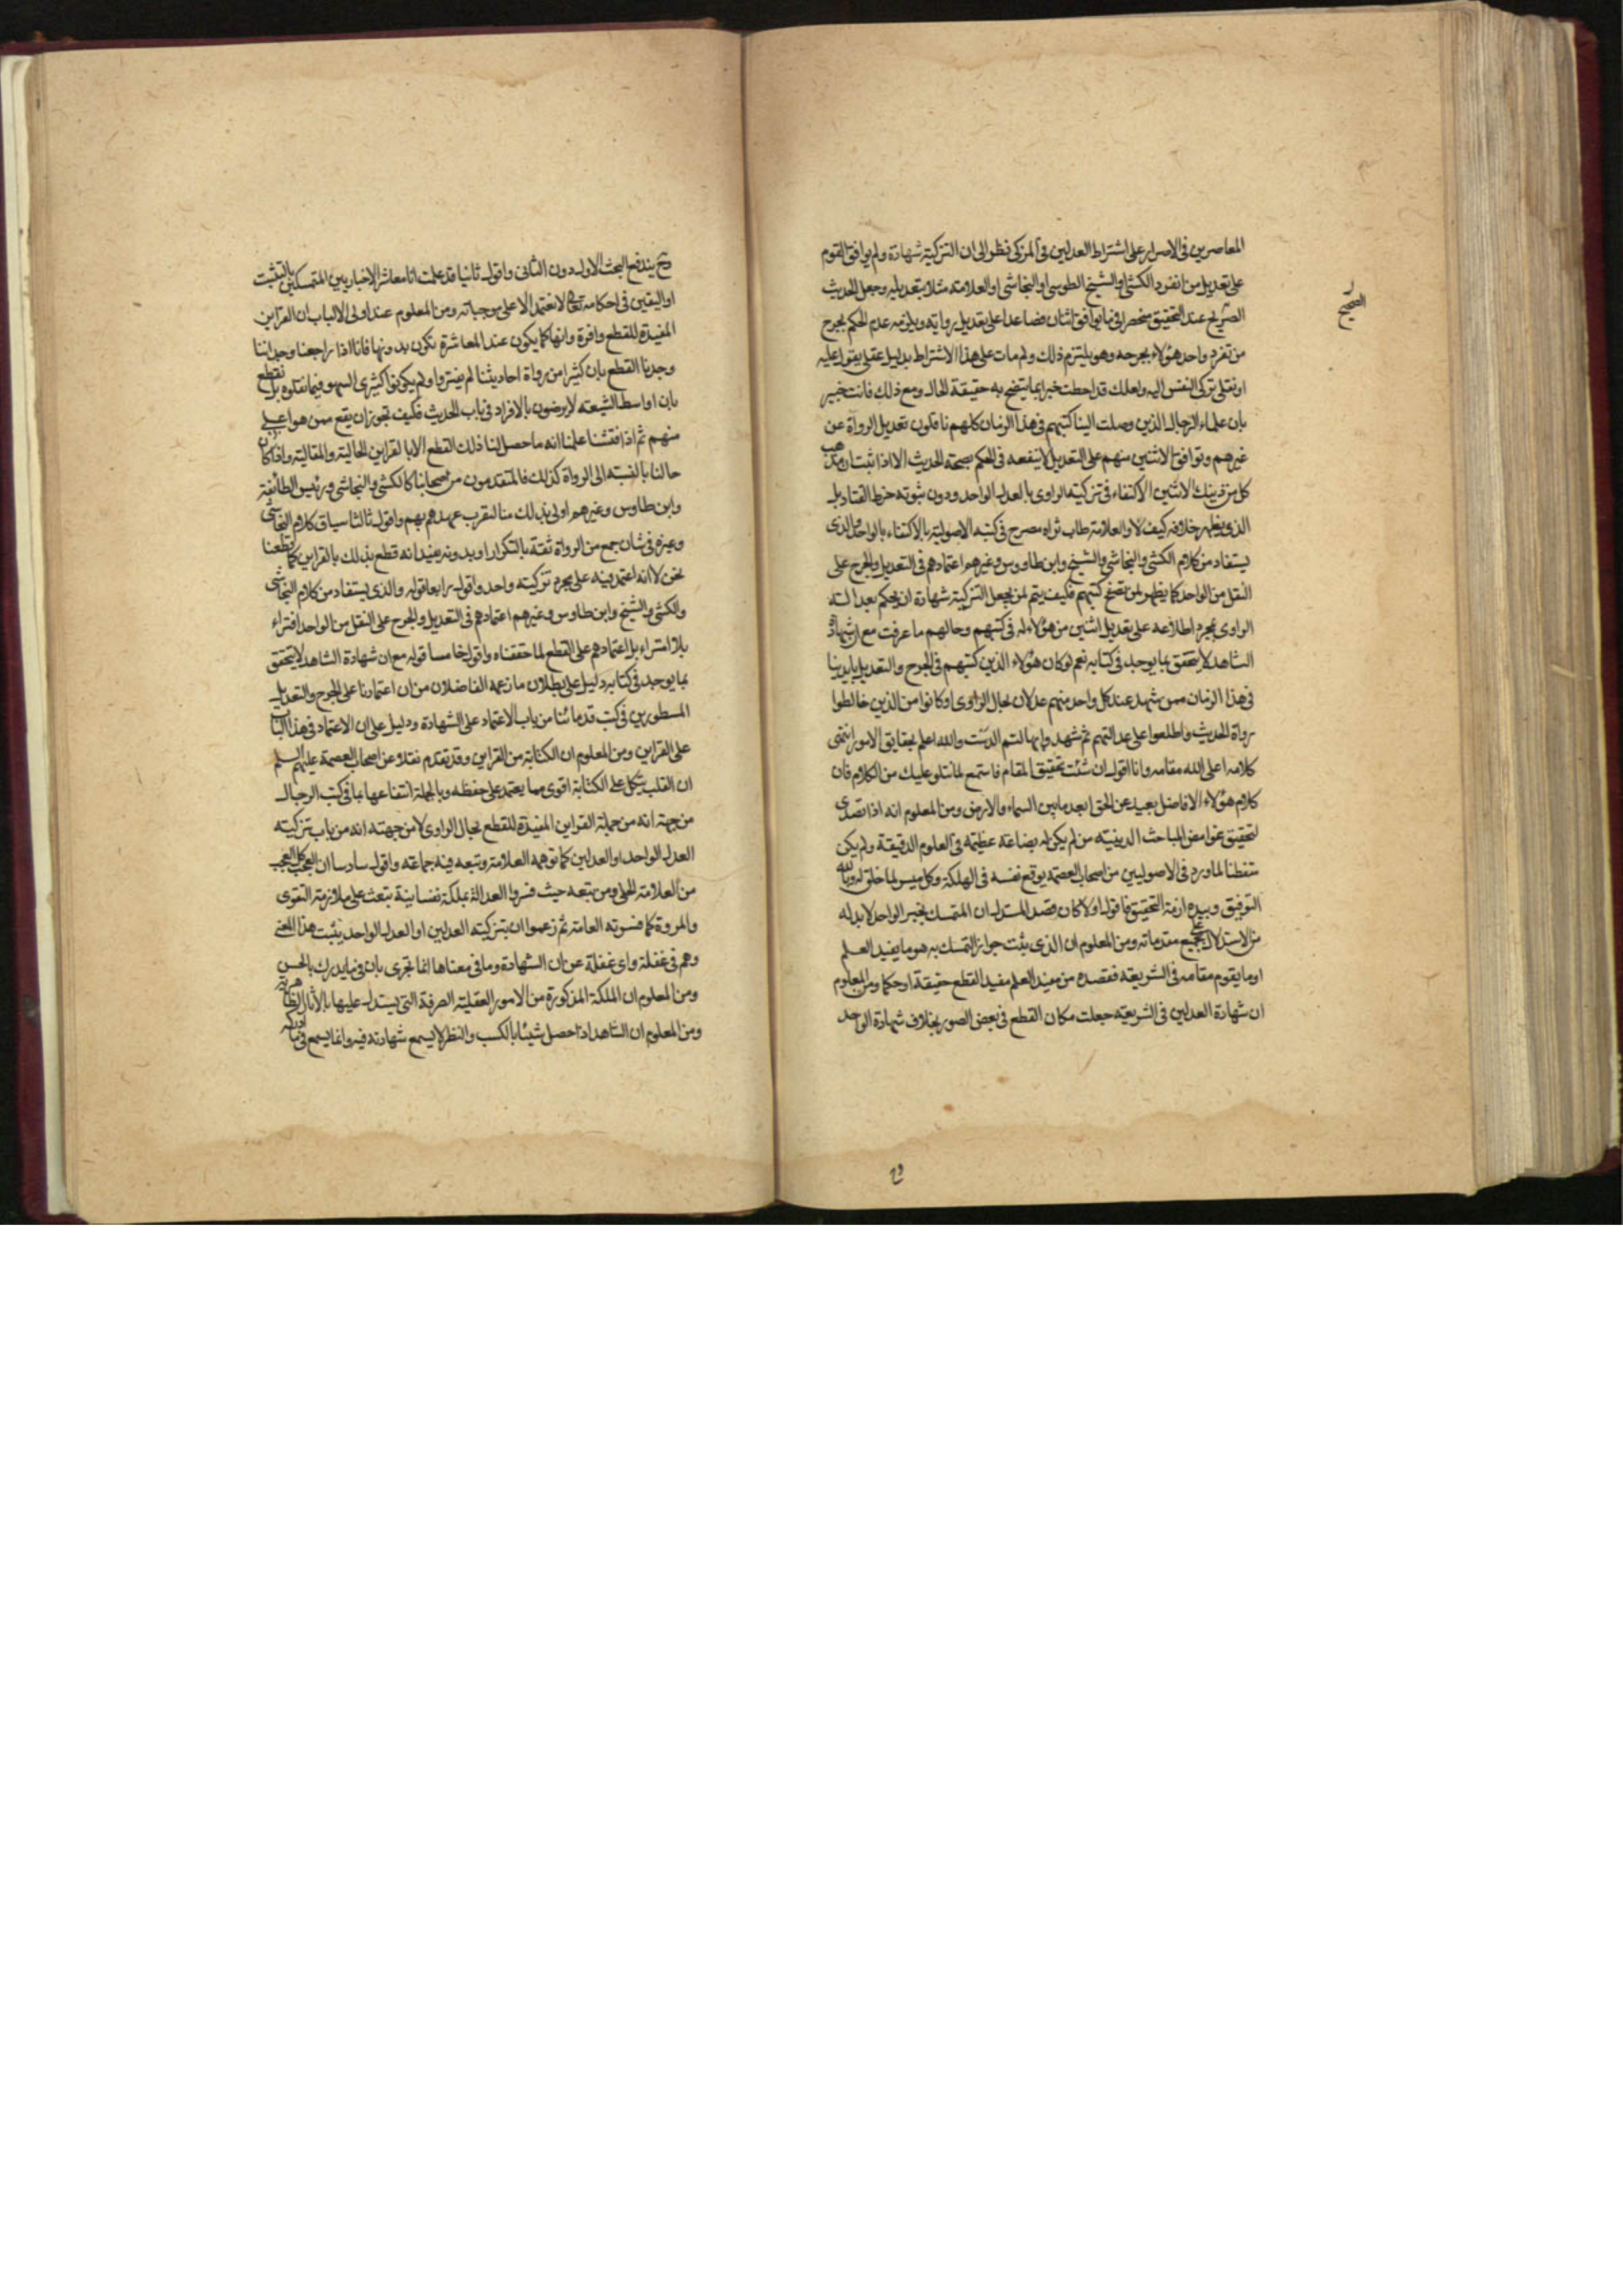 المعاصرين فى الاصرار على اشتراط العدلين فى المزكى نظرا الى ان التزكية شهادة ولم يوافق القوم
على تعديل من انفرد الكشى او الشيخ الطوسى او النجاشى او العلامة مثلا بتعديله وجعل الحديث
الصحيح عند التحقيق منحصرا فى ما توافق اثنان فصاعدا على تعديل رواته ويلزمه عدم الحكم بجرح
من تفرد واحد هؤلاء بجرحه وهو يلتزم ذلك ولم يات على هذا الاشتراط بدليل عقلى يعول عليه
او نقلى تركن النفس اليه ولعلك قد احطت خبرا بما يتضح به حقيقة الحال ومع ذلك فانت خبير
بان علماء الرجال الذين وصلت الينا كتبهم فى هذا الزمان كلهم ناقلون تعديل الرواة عن
غيرهم وتوافق الاثنين منهم على التعديل لا ينفعه فى الحكم بصحة الحديث الا اذا ثبت ان مذهب
كل من ذينك الاثنين الاكتفاء فى تزكية الراوى بالعدل الواحد ودون ثبوته خرط القتاد بل
الذى يظهر خلافه كيف لا والعلامة طاب ثراه مصرح فى كتبه الاصولية بالاكتفاء بالواحد والذى
يستفاد من كلام الكشى والنجاشى والشيخ وابن طاووس وغيرهم اعتمادهم فى التعديل والجرح على
النقل من الواحد كما يظهر لمن تصفح كتبهم فكيف يتم لمن يجعل التزكية شهادة ان يحكم بعدالة
الراوى بمجرد اطلاعه على تعديل اثنين من هؤلاء له فى كتبهم وحالهم ما عرفت مع ان شهادة
الشاهد لا يتحقق بما يوجد فى كتابه نعم لو كان هؤلاء الذين كتبهم فى الجرح والتعديل بايدينا
فى هذا الزمان ممن شهد عند كل واحد منهم عدلان بحال الراوى او كانوا من الذين خالطوا
رواة الحديث واطلعوا على عدالتهم ثم شهدوا بها لتم الدست والله اعلم بحقايق الامور انتهى
كلامه اعلى الله مقامه وانا اقول ان شئت تحقيق المقام فاستمع لما نتلو عليك من الكلام فان
كلام هؤلاء الافاضل بعيد عن الحق ابعد ما بين السماء والارض ومن المعلوم انه اذا تصدى
لتحقيق غوامض المباحث الدينية من لم يكن له بضاعة عظيمة فى العلوم الدقيقة ولم يكن
متفطنا لما ورد فى الاصوليين من اصحاب العصمة يوقع نفسه فى الهلكة وكل ميسر لما خلق له وبالله
التوفيق وبيده ازمة التحقيق فاقول اولا كان قصد المستدل ان المتمسك بخبر الواحد لا بد له
من الاستدلال على جميع مقدماته ومن المعلوم ان الذى يثبت جواز التمسك به هو ما يفيد العلم
او ما يقوم مقامه فى الشريعة فقصده من مفيد العلم مفيد القطع حقيقة او حكما ومن المعلوم
ان شهادة العدلين فى الشريعة جعلت مكان القطع فى بعض الصور بخلاف شهادة الواحد
الصحيح
وح يندفع البحث الاول دون الثانى واقول ثانيا قد علمت انا معاشر الاخباريين المتمسكين بالتثبت
او اليقين فى احكامه تعالى لا نعتمد الا على موجباته ومن المعلوم عند اولى الالباب ان القراين
المفيدة للقطع وافرة وانها كما يكون عند المعاشرة تكون بدونها فانا اذا راجعنا وجداننا
وجدنا القطع بان كثيرا من رواة احاديثنا لم يفتروا ولم يكونوا كثيرى السهو فيما نقلوه بل نقطع
بان اواسط الشيعة لا يرضون بالافراد فى باب الحديث فكيف تجوز ان يقع ممن هو اعلى
منهم ثم اذا فتشنا علمنا انه ما حصل لنا ذلك القطع الا بالقراين الحالية والمقالية واذا كان
حالنا بالنسبة الى الرواة كذلك فالمتقدمون من اصحابنا كالكشى والنجاشى ورئيس الطائفة
وابن طاوس وغيرهم اولى بذلك منا لقرب عهدهم بهم واقول ثالثا سياق كلام النجاشى
وغيره فى شان جمع من الرواة ثقة بالتكرار او بدونه يفيد انه قطع بذلك بالقراين كما قطعنا
نحن لا انه اعتمد فيه على مجرد تزكية واحد واقول رابعا قوله والذى يستفاد من كلام النجاشى
والكشى والشيخ وابن طاوس وغيرهم اعتمادهم فى التعديل والجرح على النقل من الواحد افتراء
بلا امتراء بل اعتمادهم على القطع لما حققناه واقول خامسا قوله مع ان شهادة الشاهد لا يتحقق
بما يوجد فى كتابه دليل على بطلان ما زعمه الفاضلان من ان اعتمادنا على الجرح والتعديل
المسطورين فى كتب قدمائنا من باب الاعتماد على الشهادة ودليل على ان الاعتماد فى هذا الباب
على القراين ومن المعلوم ان الكتابة من القراين وقد تقدم نقلا عن اصحاب العصمة عليهم السلم
ان القلب يتكل على الكتابة اقوى مما يعتمد على حفظه وبالجملة انتفاعها بما فى كتب الرجال
من جهة انه من جملة القراين المفيدة للقطع بحال الراوى لا من جهة انه من باب تزكية
العدل الواحد او العدلين كما توهمه العلامة وتبعه فيه جماعة واقول سادسا ان العجب كل العجب
من العلامة الحلى ومن تبعه حيث فسروا العدالة بملكة نفسانية تبعث على ملازمة التقوى
والمروة كما فسرته العامة ثم زعموا ان بتزكية العدلين او العدل الواحد يثبت هذا المعنى
وهم فى غفلة واى غفلة عن ان الشهادة وما فى معناها انما تجرى بان فى ما يدرك بالحس
ومن المعلوم ان الملكة المذكورة من الامور العقلية الصرفة التى يستدل عليها بالاثار الظاهرية
ومن المعلوم ان الشاهد اذا حصل شيئا بالكسب والنظر لا يسمع شهادته فيه وانما يسمع فى ما ادركه